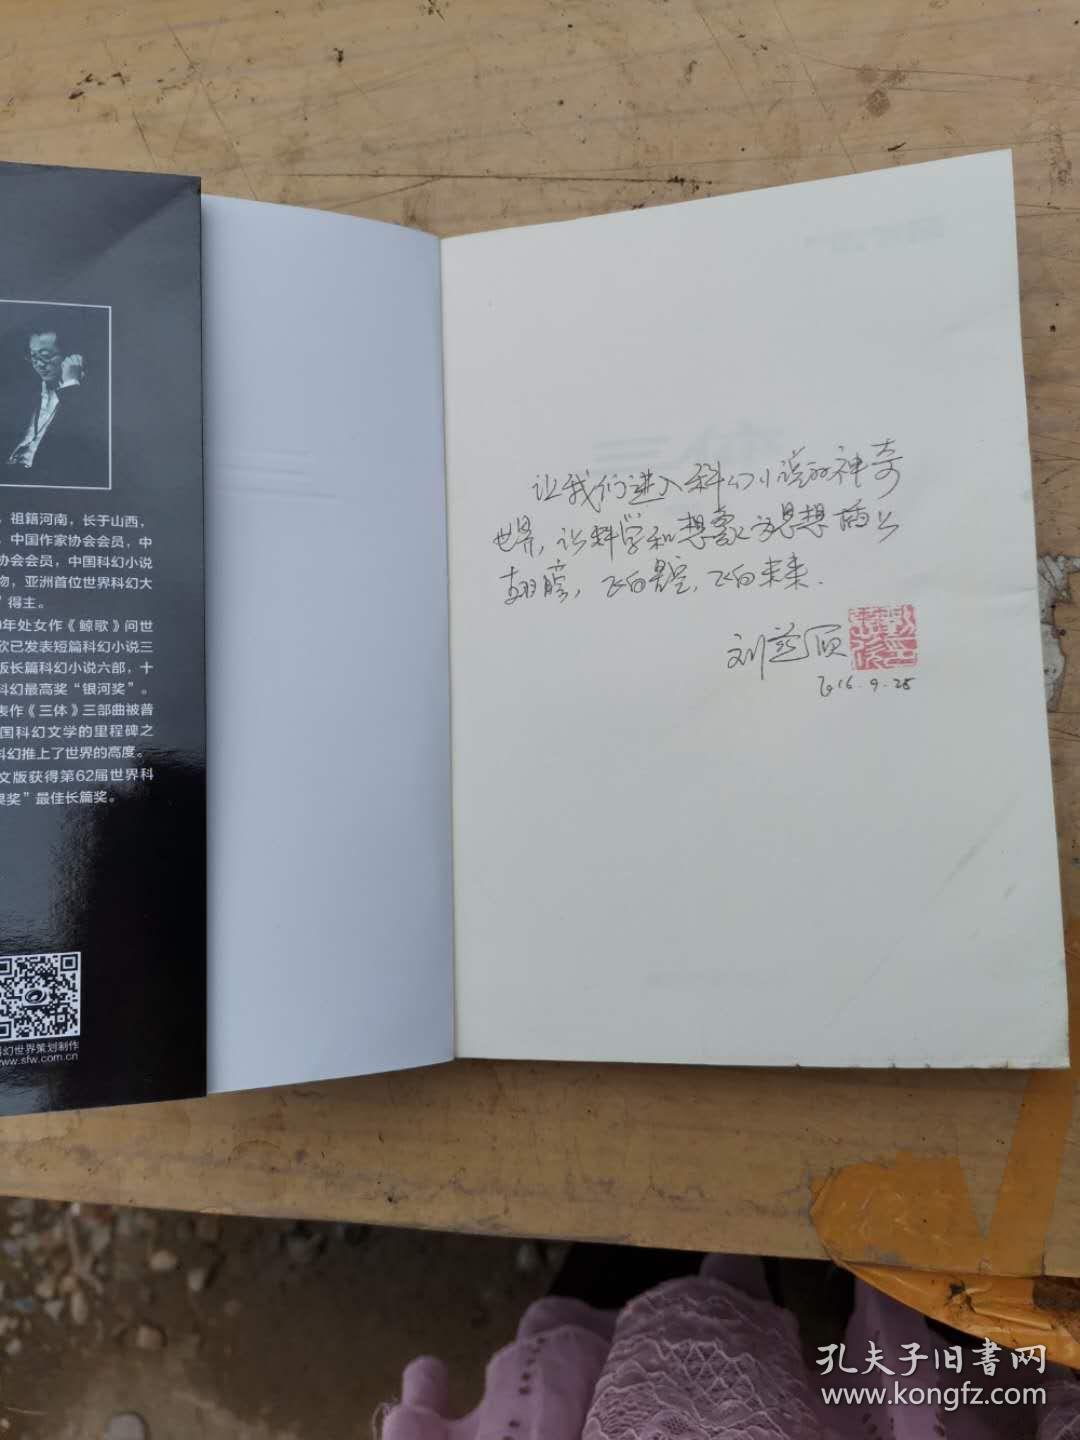 ，祖籍河南，长于山西，
，中国作家协会会员，中
协会会员，中国科幻小说
物，亚洲首位世界科幻大
”得主。
年处女作《鲸歌》问世
欣已发表短篇科幻小说三
版长篇科幻小说六部，十
科幻最高奖“银河奖”。
表作《三体》三部曲被普
国科幻文学的里程碑之
科幻推上了世界的高度。
文版获得第62届世界科
果奖”最佳长篇奖。
科幻世界策划制作
www.sfw.com.cn
让我们进入科幻小说的神奇
世界，让科学和想象为思想插上
翅膀，飞向星空，飞向未来.
刘慈欣
2016.9.25
孔夫子旧书网
www.kongfz.com